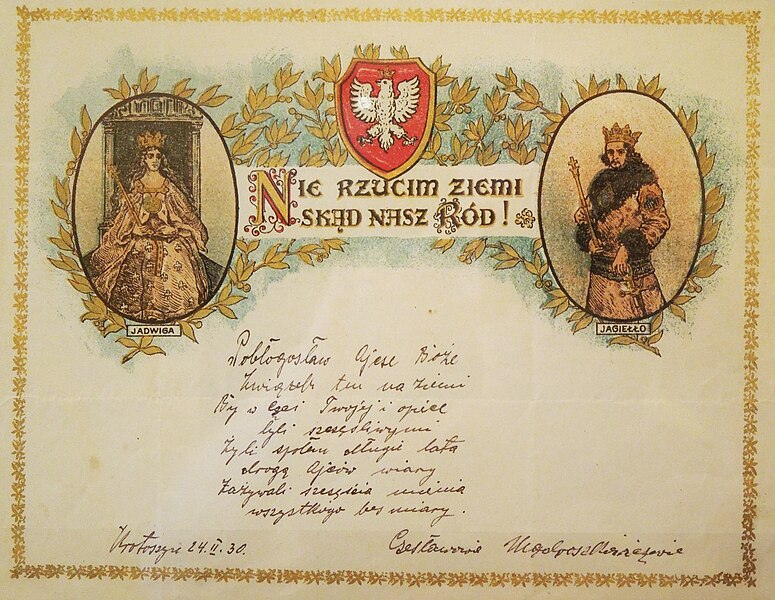 NIE RZUCIM ZIEMI
SKĄD NASZ RÓD!
JADWIGA
JAGIEŁŁO
Pobłogosław Ojcze Boże
Związek ten na ziemi
By w Czci Twojej i opiece
byli szczęśliwymi
Żyli społem długie lata
drogą Ojców wiary
Zażywali szczęścia mienia
wszystkiego bez miary.
Krotoszyn 24.II.30.
Czesławowie